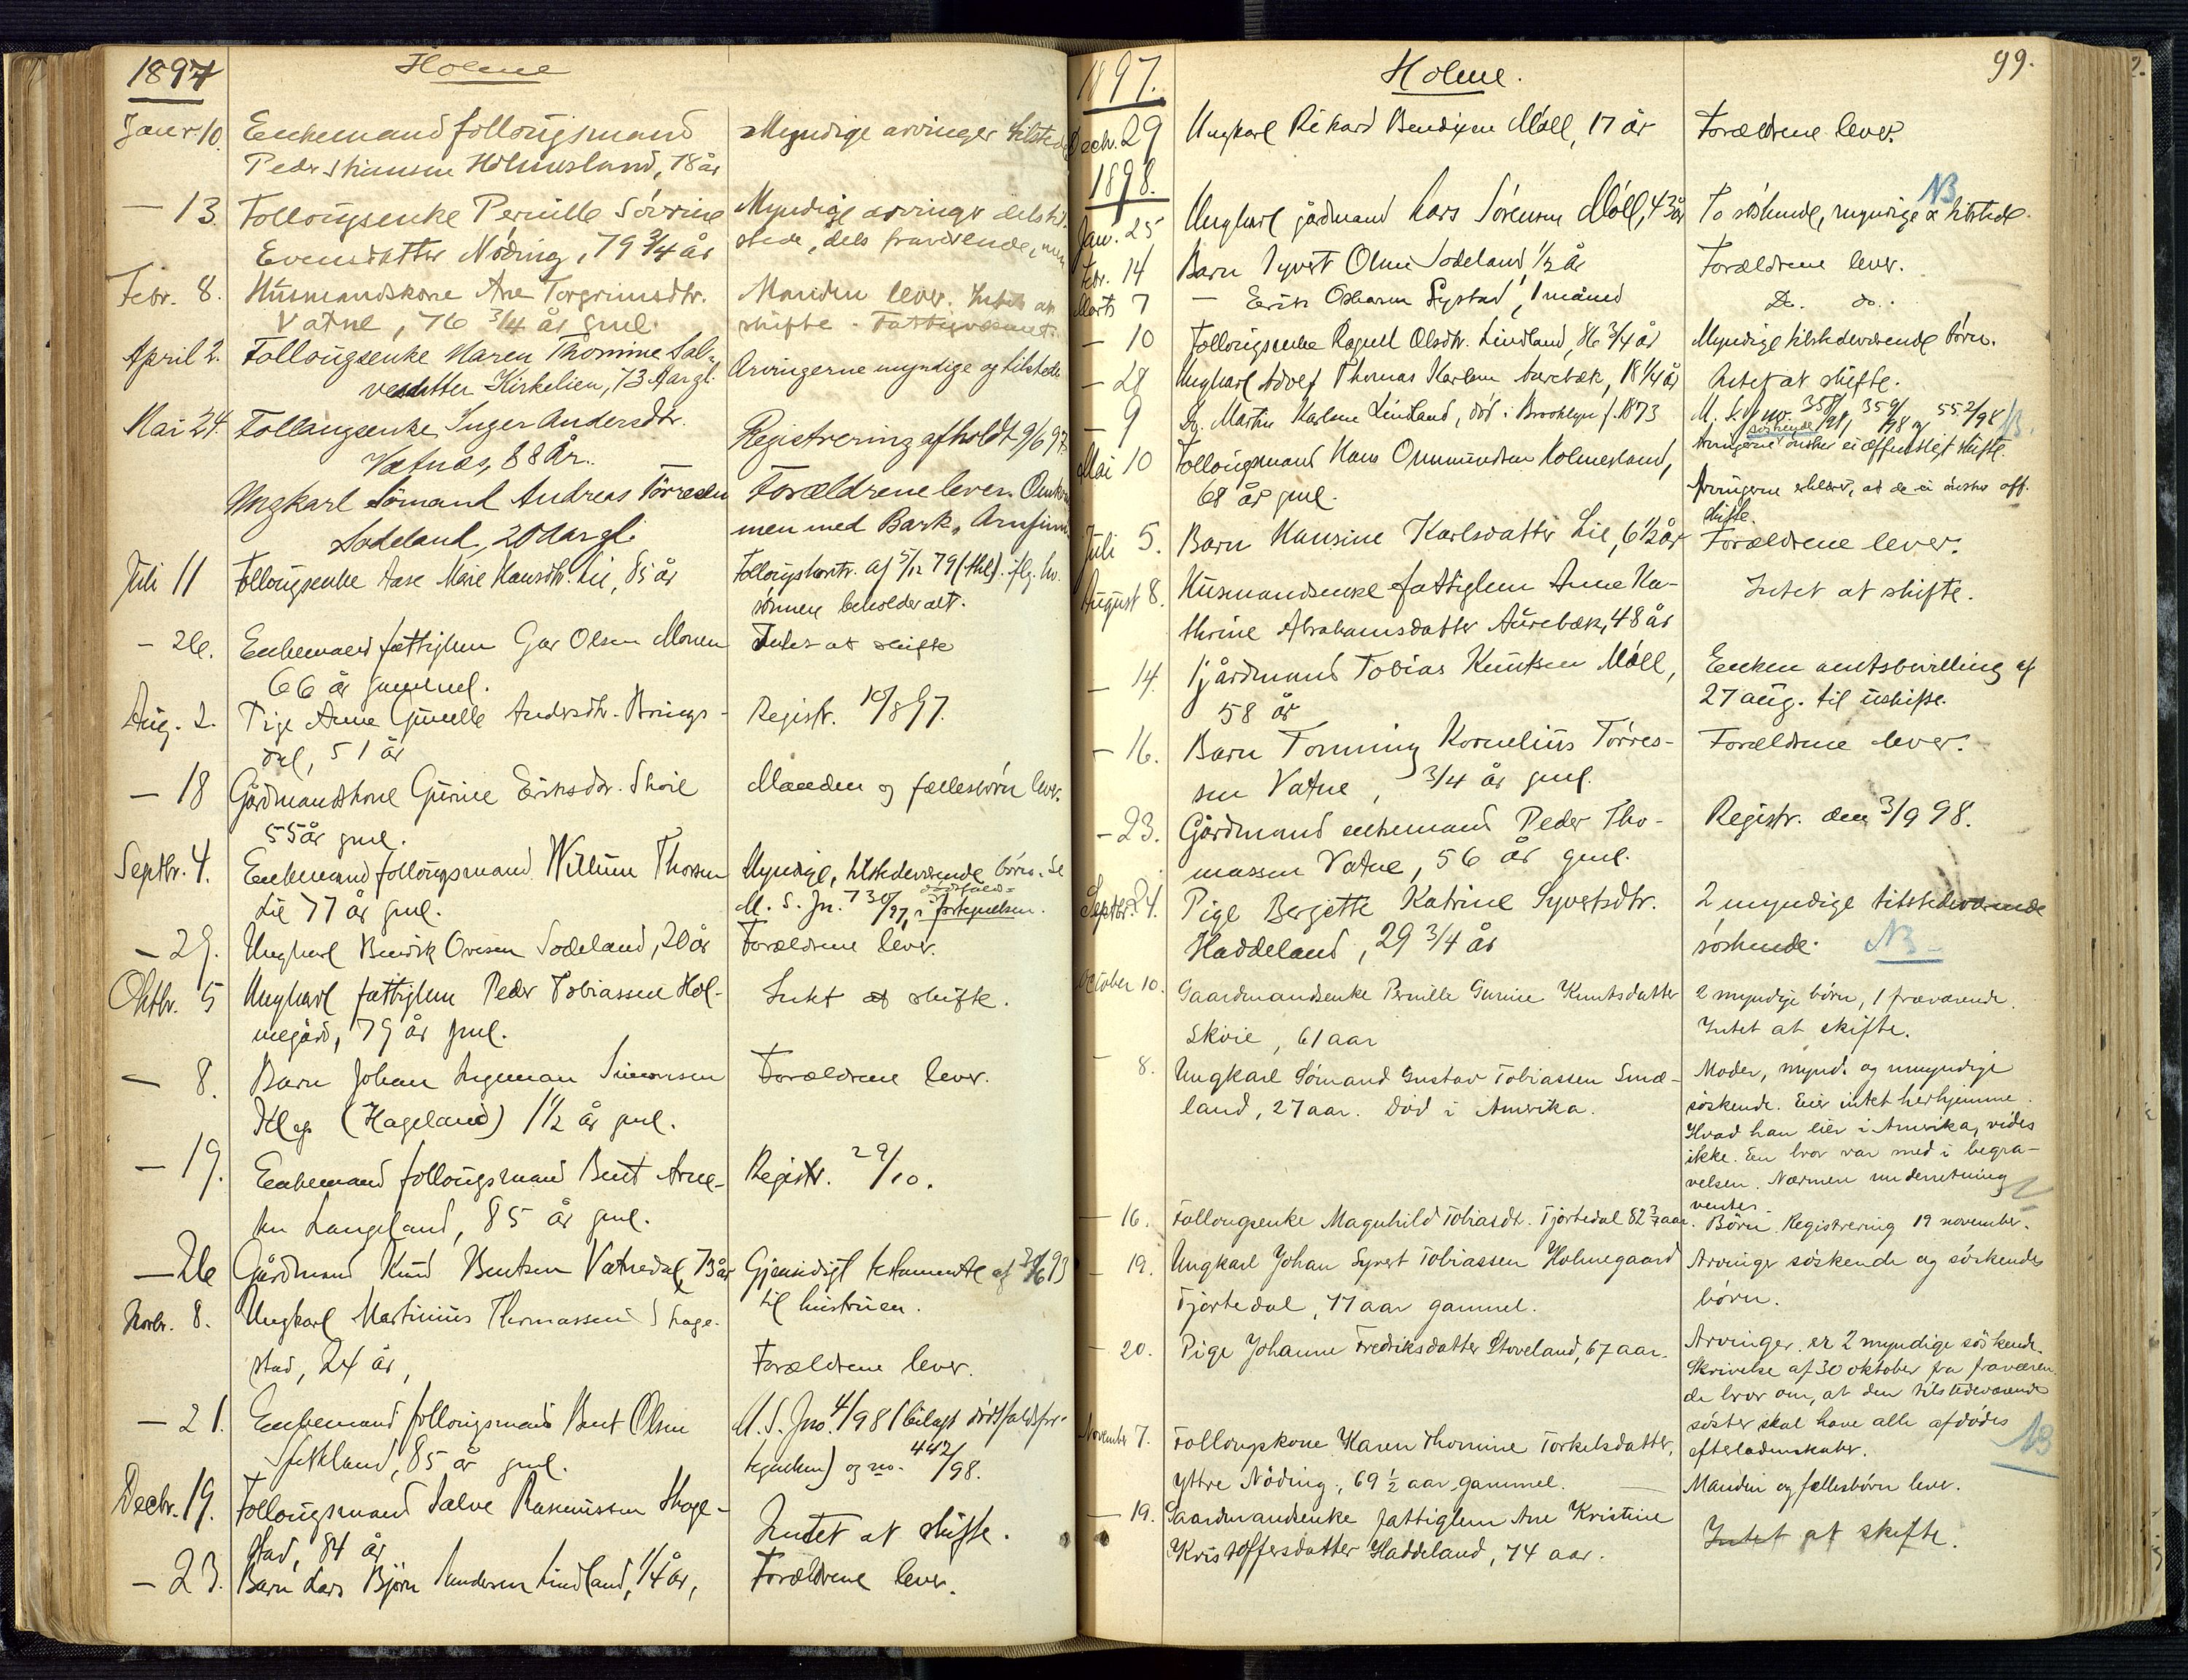 1897
Holme
Janr 10.
Enkemand follougsmand
Myndige arvinger tilstede
Peder Hansen Holmesland, 78 år
— 13.
Follougsenke Pernille Sørine
Myndige arvinger dels til-
Evensdatter Nøding, 79 3/4 år
stede, dels fraværende,
Febr. 8.
Husmandskone Ane Torgrimsdtr.
Manden lever. Intet at
Vatne, 76 3/4 år gml.
skifte. Fattigvæsenet.
April 2.
Follougsenke Maren Thomine Sal-
Arvingerne myndige og tilstede
vesdatter Kirkelien, 73 Aar gl.
Mai 24.
Follougsenke Inger Andersdtr.
Registrering afholdt 9/6 97.
Vatnas, 88 År.
Ungkarl Sømand Andreas Tørresen
Forældrene lever. Omkom-
Sodeland, 20 Aar gl.
men med Bark "Arnfinn
Juli 11
Follougsenke Aase Marie Hansdtr. Lie, 85 år
Follougskontr. af 5/12 79 (thl). iflg. hv.
sønnen beholder alt.
— 26.
Enkemand fattiglem Gar Olsen Monen
Intet at skifte
66 år gammel.
Aug. 2.
Pige Anne Gunelle Andersdtr. Brings-
Registr. 10/8 97.
dal, 51 år
— 18
Gårdmandskone Gurine Eriksdtr. Skoie
Manden og fællesbørn lever.
55 år gml.
Septbr. 4.
Enkemand follougsmand Willum Thorsen
Myndige, tilstedeværende børn. Se
Lie 77 år gml.
M. S. Jn. 730/97, i dødsfalds-
fortegnelsen.
— 29.
Ungkarl Bendik Ovesen Sodeland, 20 år
Forældrene lever.
Oktbr. 5
Ungkarl fattiglem Peder Tobiassen Hol-
Intet at skifte.
megård, 79 år gml.
— 8.
Barn Johan Ingeman Simonsen
Forældrene lever.
(Hageland) 1 1/2 år gml.
— 19.
Enkemand follougsmand Bent Arne-
Registr. 29/10.
sen Langeland, 85 år gml.
— 26
Gårdmand Knud Bentsen Vatnedal, 73 år
Gjensidigt testamente af 30/6 93
til hustruen.
Novbr. 8.
Ungkarl Martinius Thomassen Skage-
stad, 24 år,
Forældrene lever.
— 21.
Enkemand follougsmand Bent Olsen
M. S. Jno. 4/98 (bilagt dødsfaldsfor-
85 år gml.
tegnelsen) og no. 442/98.
Decbr. 19.
Follougsmand Salve Rasmussen Skage-
Intet at skifte.
stad, 84 år
— 23.
Barn Lars Bjørn Andersen Lindland, 1/4 år,
Forældrene lever.
1897.
Holme.
99.
Decbr. 29
Ungkarl Rikard Bendixen Møll, 17 år
Forældrene lever.
1898.
NB
Jan. 25
Ungkarl gårdmand Lars Sørensen Møll, 43 år
To søskende, myndige & tilstede.
Febr. 14
Barn Syvert Olsen Sodeland, 1/2 år
Forældrene lever.
Marts 7
— Erik Oskarsen Systad, 1 måned
Do. do.
— 10
Follougsenke Ragnil Olsdtr. Lindland, 86 3/4 år
Myndige tilstedeværende børn.
— 28
Ungkarl Adolf Thomas Karlsen Aurebæk, 18 1/4 år
Intet at skifte.
— 9
Do. Martin Karlsen Lindland, død i Brooklyn f. 1873
M. S. J. no. 358/98, 359/98 og 552/98 NB.
søskende
Arvingerne ønsker ei offentligt skifte.
Mai 10
Follougsmand Hans Ommundsen Holmesland,
Arvingerne erklærer, at de ei ønsker off.
68 år gml.
skifte.
Juli 5.
Barn Hansine Karlsdatter Lie, 6 1/2 år
Forældrene lever.
August 8.
Husmandsenke fattiglem Anne Ka-
Intet at skifte.
thrine Abrahamsdatter Aurebæk, 48 år
— 14.
Gjårdmand Tobias Knutsen Møll,
Enken amtsbevilling af
58 år
27 aug. til uskifte.
— 16.
Barn Tomming Kornelius Tørres-
Forældrene lever.
sen Vatne, 3/4 år gml.
— 23.
Gjårdmand enkemand Peder Tho-
Registr. den 3/9 98.
massen Vatne, 56 år gml.
Septbr. 24.
Pige Bergette Katrine Syvertsdtr.
2 myndige tilstedeværende
Haddeland, 29 3/4 år
søskende. NB —
October 10.
Gaardmandsenke Pernille Gurine Knutsdatter
2 myndige børn, 1 fraværende.
Skoie, 61 aar
Intet at skifte.
— 8.
Ungkarl Sømand Gustav Tobiassen Smæ-
Moder, mynd. og umyndige
land, 27 aar. Død i Amerika.
søskende. Eier intet herhjemme.
Hvad han eier i Amerika, vides
ikke. En bror var med i begra-
velsen. Nærmere underretning
ventes.
— 16.
Follougsenke Magnhild Tobiasdt. Tjørtedal 82 3/4 aar.
Børn. Registrering 19 november.
— 19.
Ungkarl Johan Syvert Tobiassen Holmegaard
Arvinger søskende og søskendes
Tjørtedal, 77 aar gammel.
børn.
— 20.
Pige Johanne Fredriksdatter Stoveland, 67 aar.
Arvinger er 2 myndige søskende.
Skrivelse af 30 oktober fra fraværen-
de bror om, at den tilstedeværende
søster skal have alle afdødes
November 7.
Follougskone Karen Thomine Torkelsdatter,
efterladenskaber.
NB
Yttre Nöding, 69 1/2 aar gammel. —
Manden og fællesbørn lever.
— 19.
Gaardmandsenke fattiglem Ane Kristine
Intet at skifte.
Kristoffersdatter Haddeland, 74 aar.